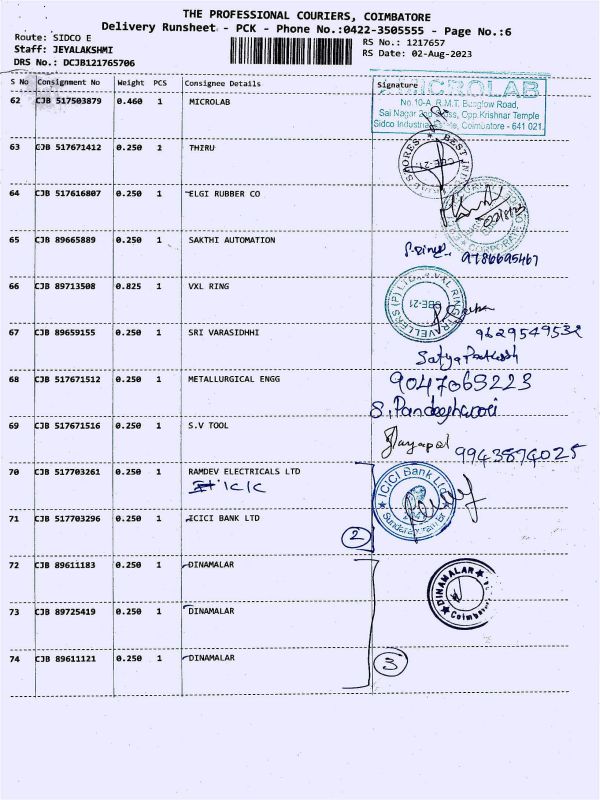 THE PROFESSIONAL COURIERS, COIMBATORE
Delivery Runsheet - PCK - Phone No.:0422-3505555 - Page No.:6
Route: SIDCO E
RS No.: 1217657
Staff: JEYALAKSHMI
RS Date: 02-Aug-2023
DRS No.: DCJB121765706
S No Consignment No Weight PCS Consignee Details Signature
62 CJB 517503879 0.460 1 MICROLAB
MICROLAB
No.10-A, R.M.T. Bunglow Road,
Sai Nagar 2nd Cross, Opp.Krishnar Temple
Sidco Industrial Estate, Coimbatore - 641 021.
63 CJB 517671412 0.250 1 THIRU
CBE-21
64 CJB 517616807 0.250 1 ELGI RUBBER CO
65 CJB 89665889 0.250 1 SAKTHI AUTOMATION
9786695467
66 CJB 89713508 0.825 1 VXL RING
VXL RING TRAVELLERS (P) LTD.
CBE-21
67 CJB 89659155 0.250 1 SRI VARASIDHHI
9629549532
68 CJB 517671512 0.250 1 METALLURGICAL ENGG
9047069223
69 CJB 517671516 0.250 1 S.V TOOL
Jayapal 9943874025
70 CJB 517703261 0.250 1 RAMDEV ELECTRICALS LTD
ICIC
ICICI Bank Ltd
71 CJB 517703296 0.250 1 ICICI BANK LTD
2
72 CJB 89611183 0.250 1 DINAMALAR
DINAMALAR
Coimbatore
73 CJB 89725419 0.250 1 DINAMALAR
74 CJB 89611121 0.250 1 DINAMALAR
3